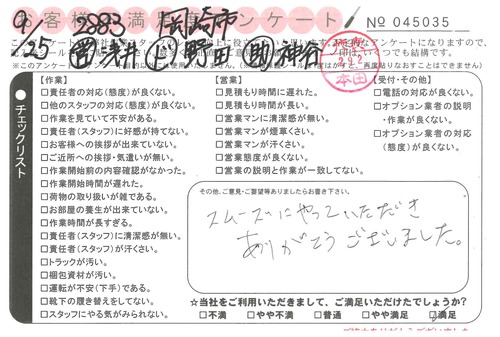 お客様満足度アンケート
№ 045035
9/25 2883 岡崎市
浅井 野町 神谷
本田
チェックリスト
【作業】
□責任者の対応(態度)が良くない。
□他のスタッフの対応(態度)が良くない。
□作業を見ていて不安がある。
□責任者(スタッフ)に好感が持てない。
□お客様への挨拶が出来ていない。
□ご近所への挨拶・気遣いが無い。
□作業開始前の内容確認がなかった。
□作業開始時間が遅れた。
□荷物の取り扱いが雑である。
□お部屋の養生が出来ていない。
□作業時間が長すぎる。
□責任者(スタッフ)に清潔感が無い。
□責任者(スタッフ)が汗くさい。
□トラックが汚い。
□梱包資材が汚い。
□運転が不安(下手)である。
□靴下の履き替えをしてない。
□スタッフにやる気がみられない。
【営業】
□見積もり時間に遅れた。
□見積もり時間が長い。
□営業マンに清潔感が無い。
□営業マンが煙草くさい。
□営業マンが汗くさい。
□営業態度が良くない。
□営業の説明と作業が一致してない。
【受付・その他】
□電話の対応が良くない。
□オプション業者の説明
・作業が良くない。
□オプション業者の対応
(態度)が良くない。
その他、ご意見・ご要望等ありましたらお書き下さい。
スムーズにやっていただき
ありがとうございました。
☆当社をご利用いただきまして、ご満足いただけたでしょうか?
□不満 □やや不満 □普通 □やや満足 □満足